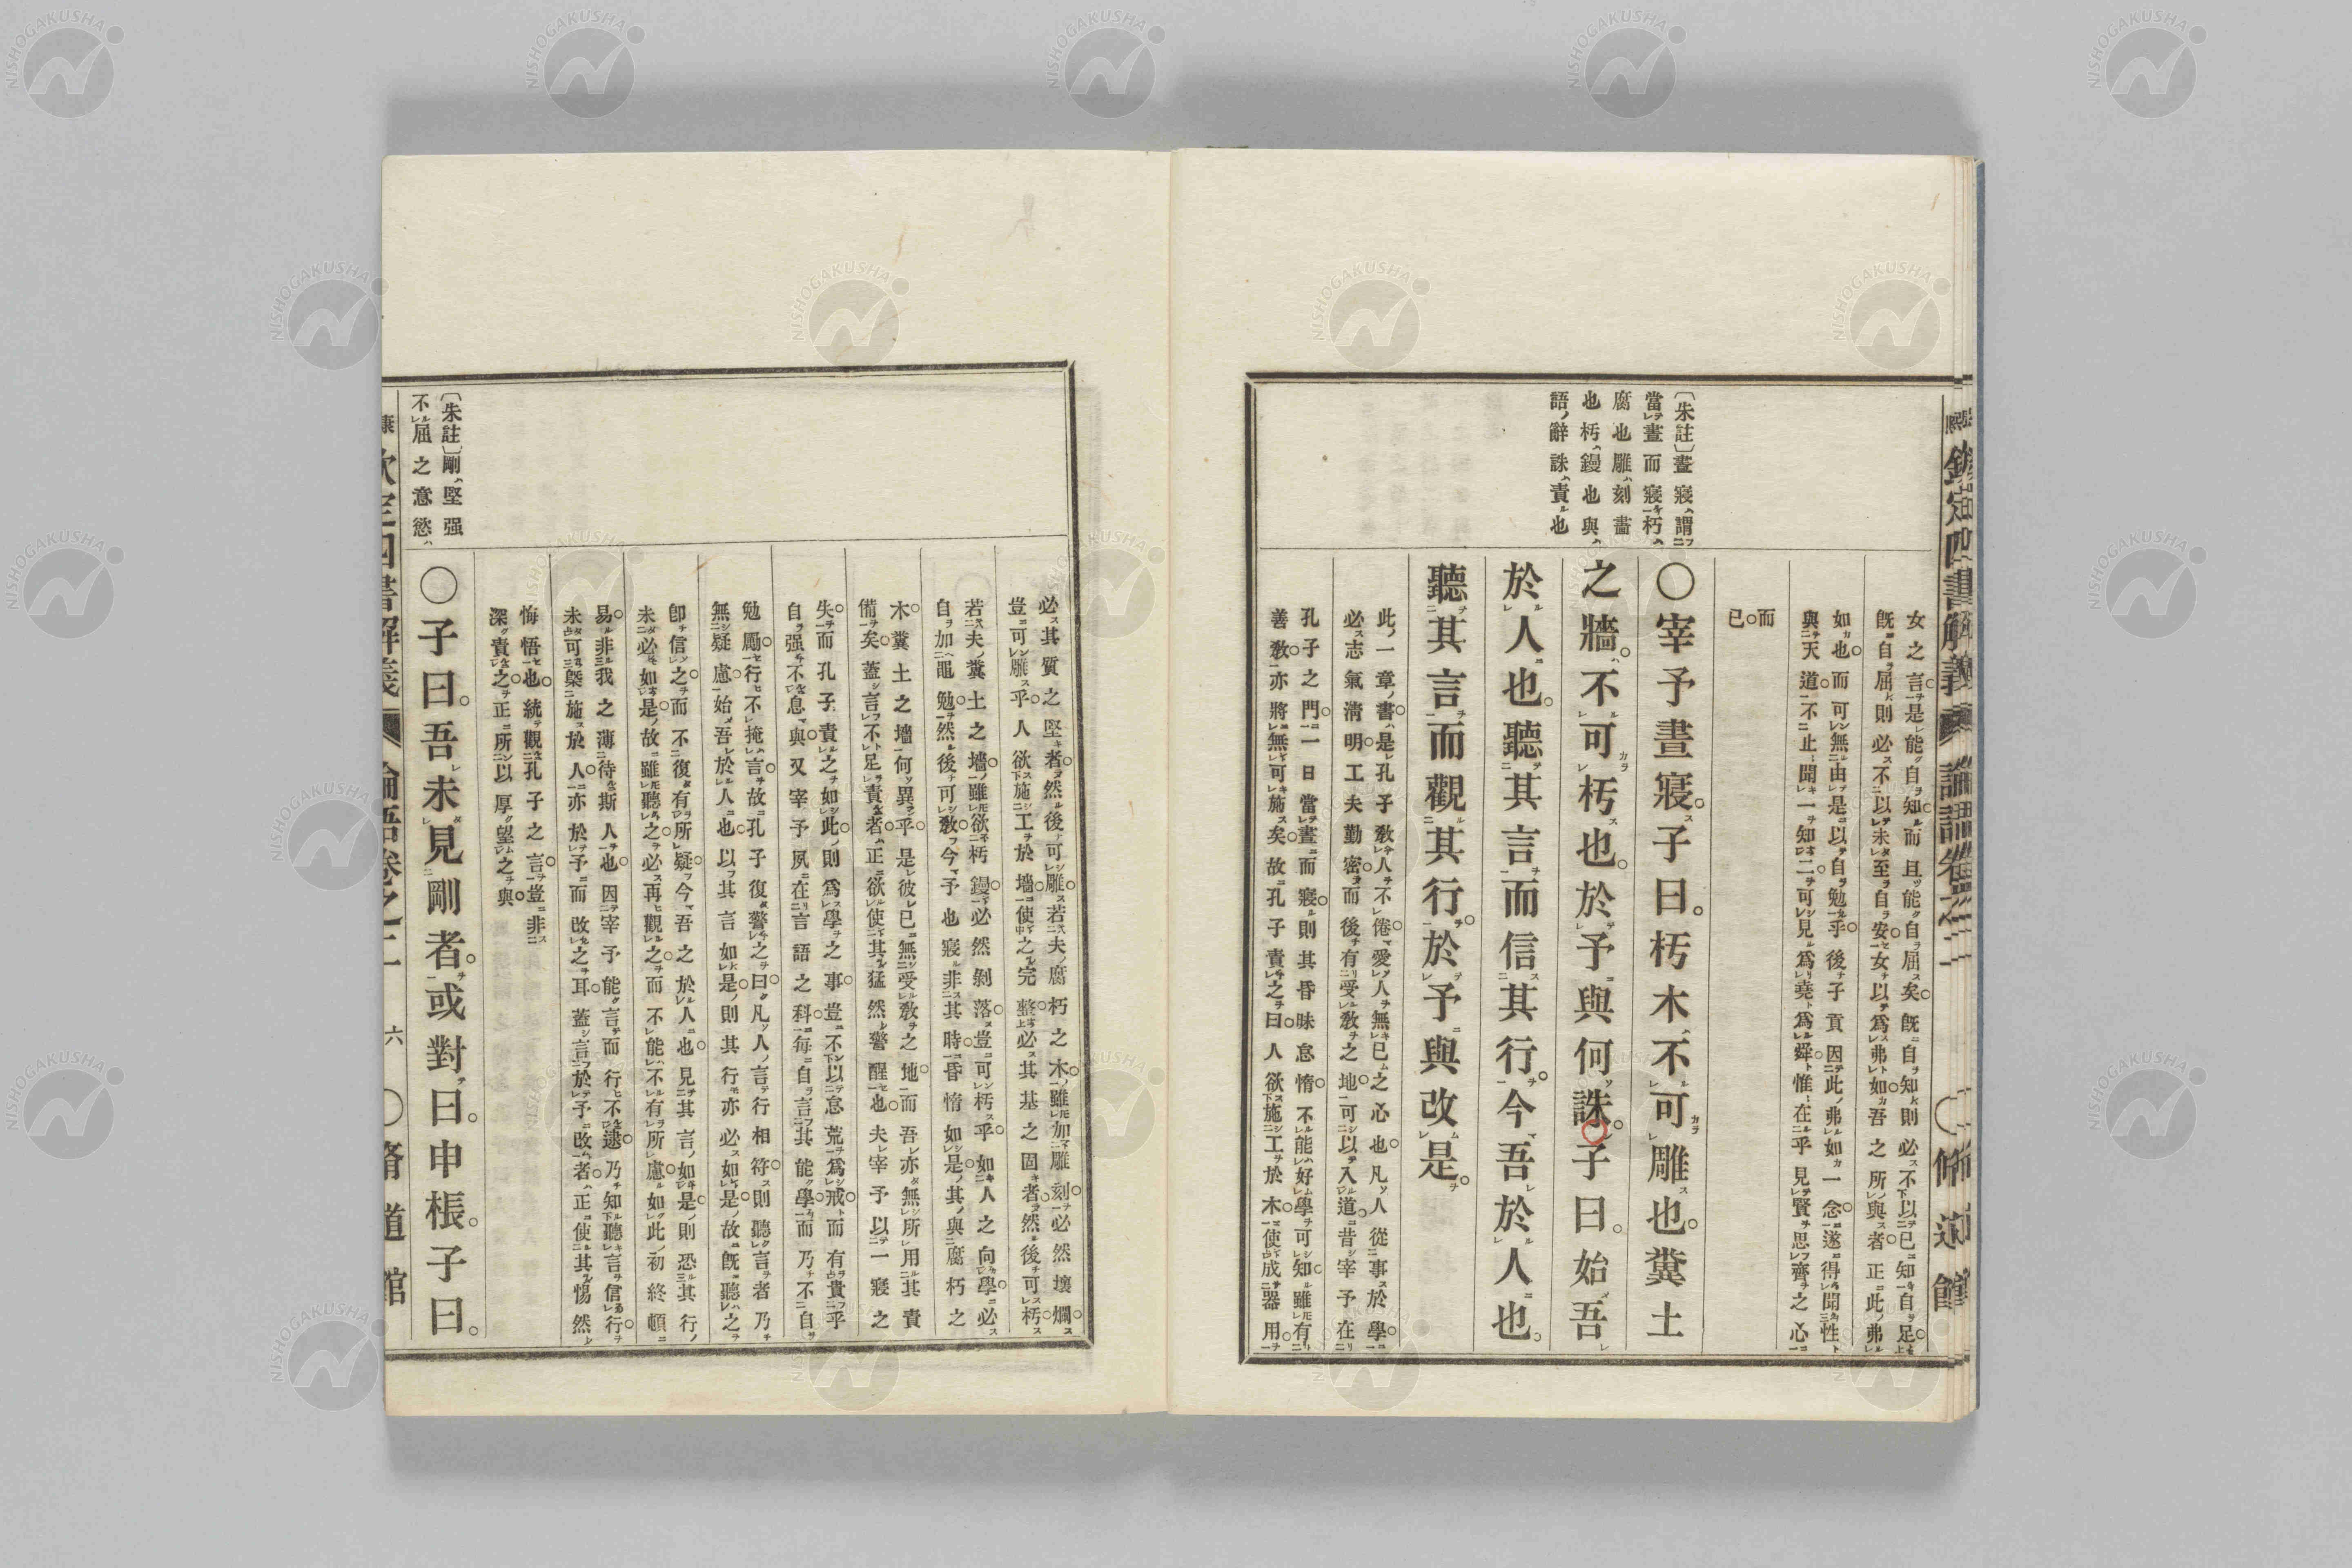 女之言是能自知而且能自屈矣既自知則必不以已知自足
既自屈則必不以未至自安女以爲弗如吾之所與者正此弗
如也而可無由是以自勉乎後子貢因此弗如一念遂得聞性
與天道不止聞一知二可見爲堯爲舜惟在乎見賢思齊之心
而
已
〔朱註〕晝寢謂
當晝而寢朽
腐也雕刻畫
也杇鏝也與
語辭誅責也
〇宰予晝寢子曰朽木不可雕也糞土
之牆不可杇也於予與何誅子曰始吾
於人也聽其言而信其行今吾於人也
聽其言而觀其行於予與改是
此一章書是孔子敎人不倦愛人無已之心也凡人從事於學
必志氣淸明工夫勤密而後有受敎之地可以入道昔宰予在
孔子之門一日當晝而寢則其昏昧怠惰不能好學可知雖有
善敎亦將無可施矣故孔子責之曰人欲施工於木使成器用
必其質之堅者然後可雕若夫腐朽之木雖加雕刻必然壞爛
豈可雕乎人欲施工於墻使之完整必其基之固者然後可杇
若夫糞土之墻雖欲杇鏝必然剝落豈可杇乎如人之向學必
自加黽勉然後可敎今予也寢非其時昏惰如是其與腐朽之
木糞土之墻何異乎是彼已無受敎之地而吾亦無所用其責
備矣蓋言不足責者正欲使其猛然警醒也夫宰予以一寢之
失而孔子責之如此則爲學之事豈不以怠荒爲戒而有貴乎
自强不息與又宰予夙在言語之科每自言其能學而乃不自
勉勵行不掩言故孔子復警之曰凡人言行相符則聽言者乃
無疑慮始吾於人也以其言如是則其行亦必如是故旣聽之
卽信之而不復有所疑今吾之於人也見其言如是則恐其行
未必如是故雖聽之必再觀之而不能不有所慮如此初終頓
易非我之薄待斯人也因宰予能言而行不逮乃知聽言信行
未可槩施於人亦於予而改之耳蓋言於予改者正使其惕然
悔悟也統觀孔子之言豈非
深責之正所以厚望之與
〔朱註〕剛堅强
不屈之意慾
〇子曰吾未見剛者或對曰申棖子曰
欽定四書解義
論語卷之二
六
〇脩道館